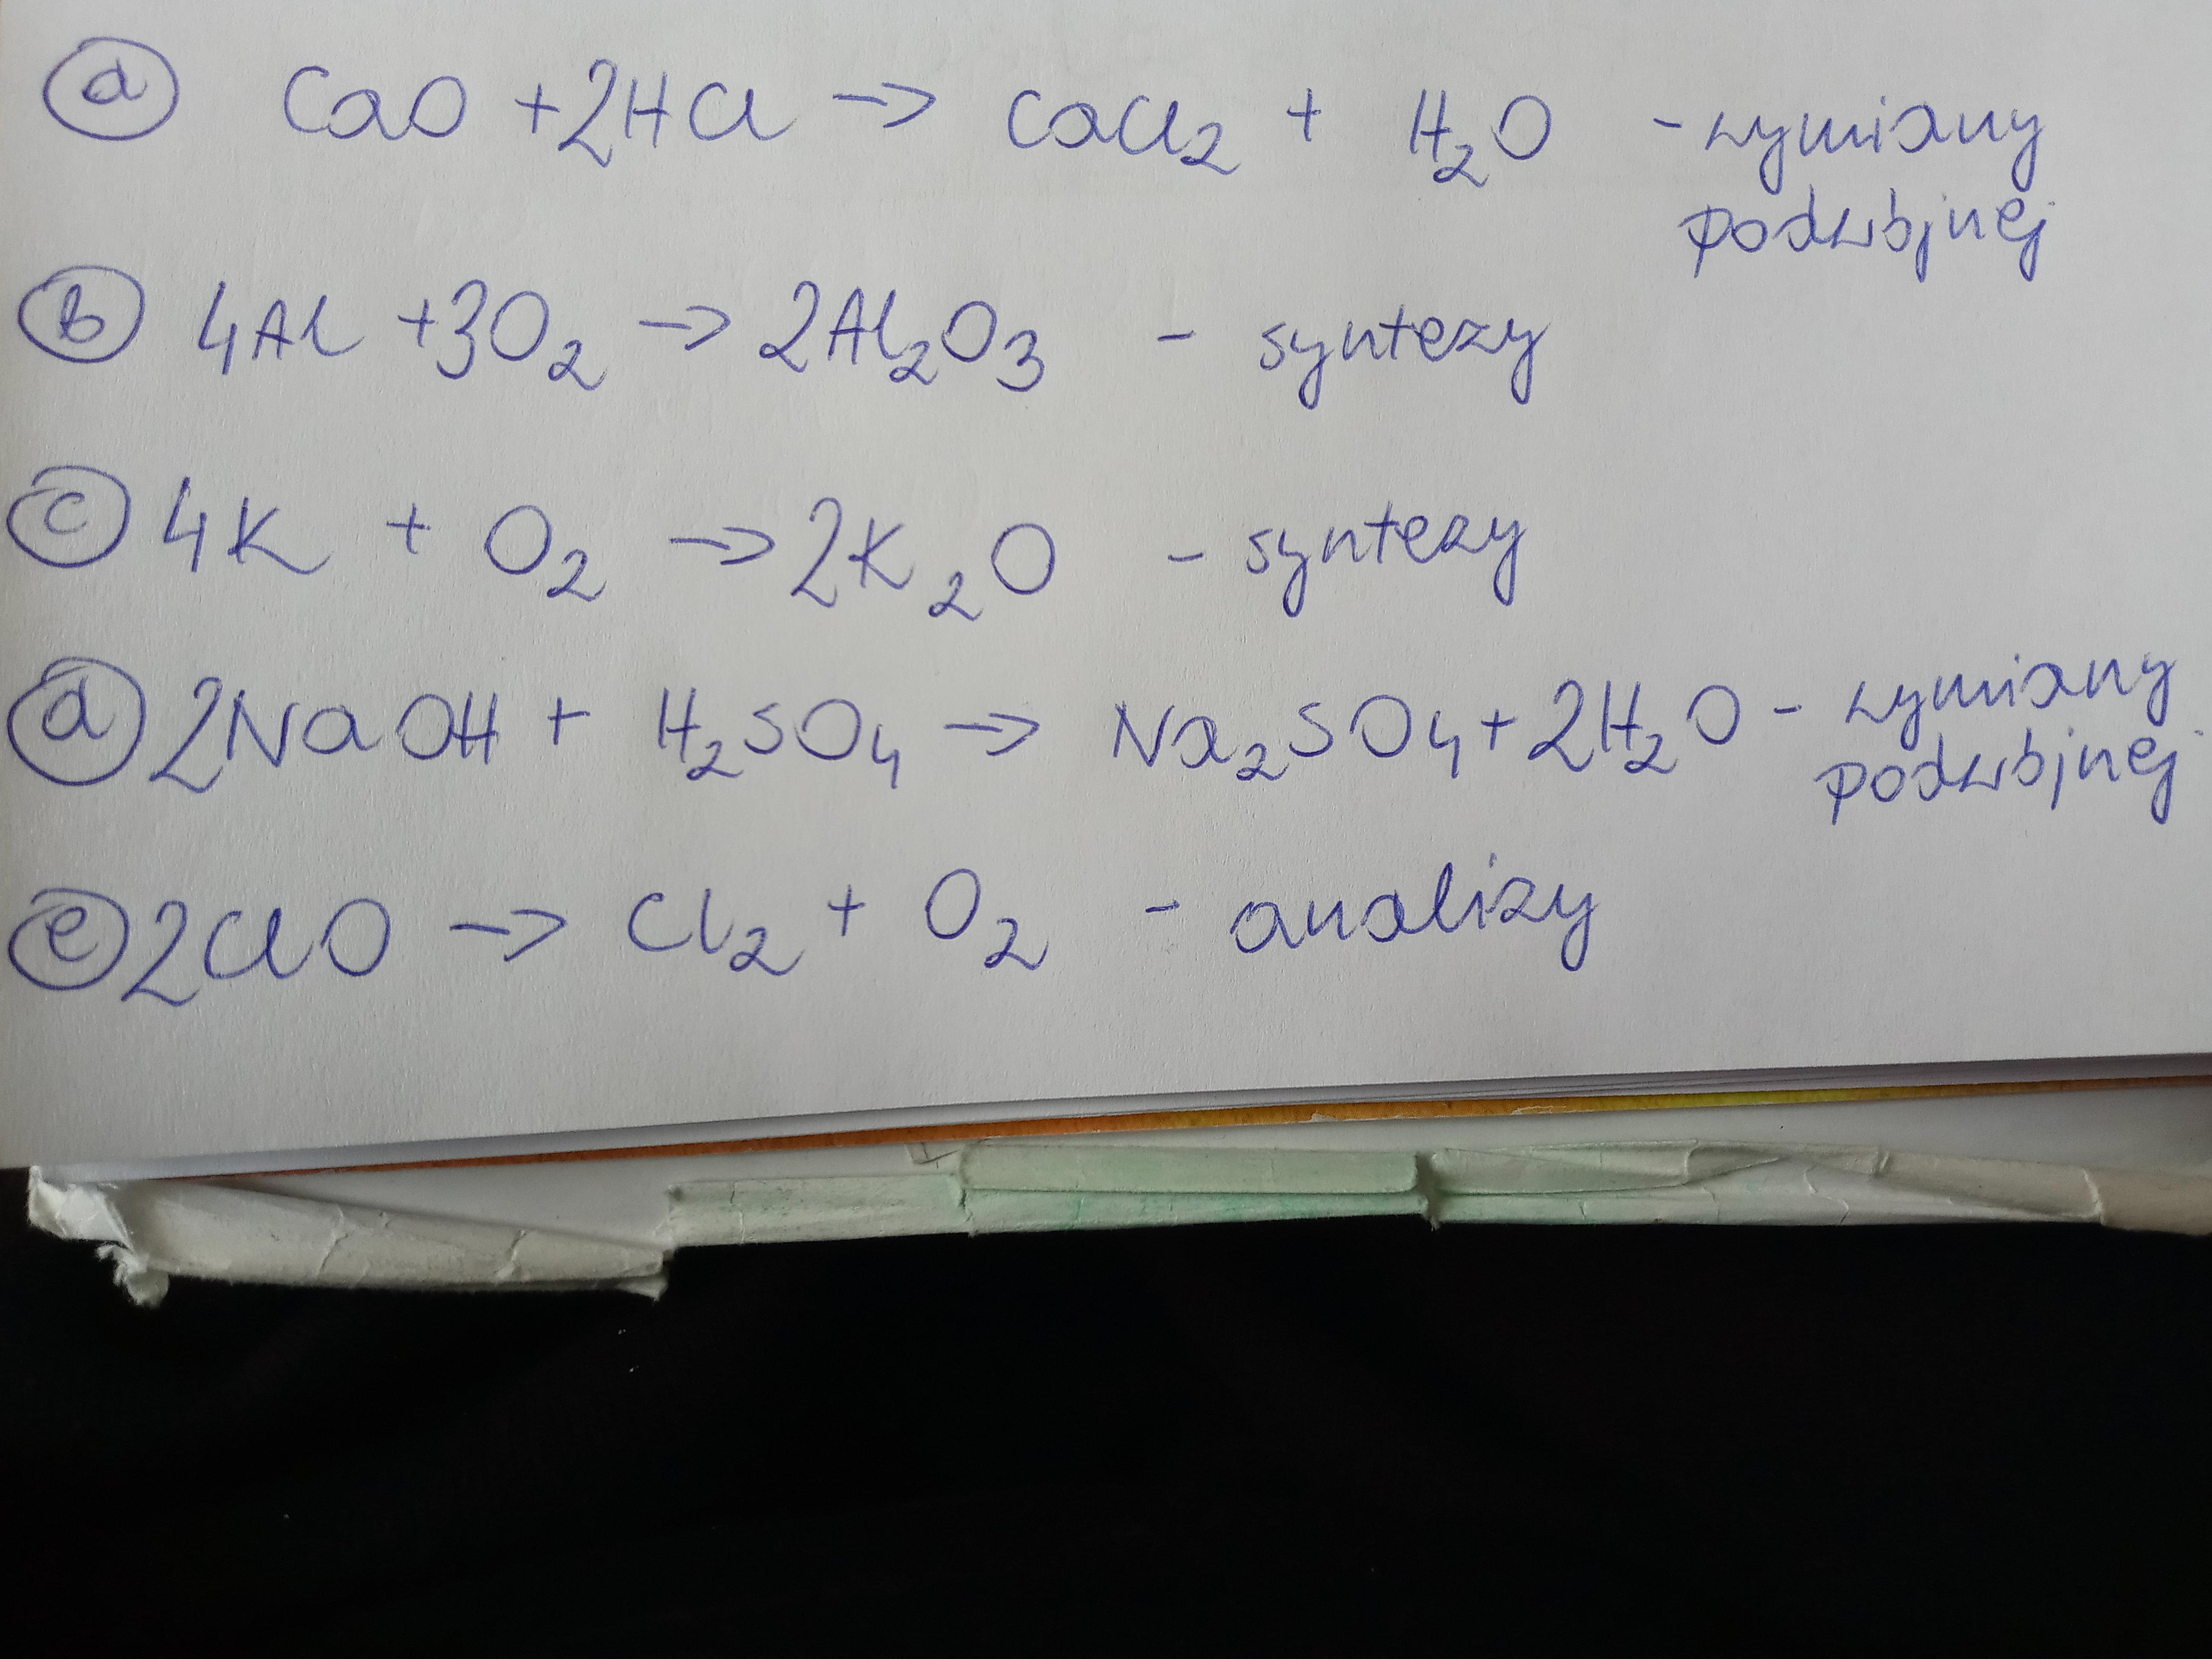 a CaO + 2HCl → CaCl₂ + H₂O - wymiany
podwójnej
b 4Al + 3O₂ → 2Al₂O₃ - syntezy
c 4K + O₂ → 2K₂O - syntezy
d 2NaOH + H₂SO₄ → Na₂SO₄ + 2H₂O - wymiany
podwójnej
e 2ClO → Cl₂ + O₂ - analizy